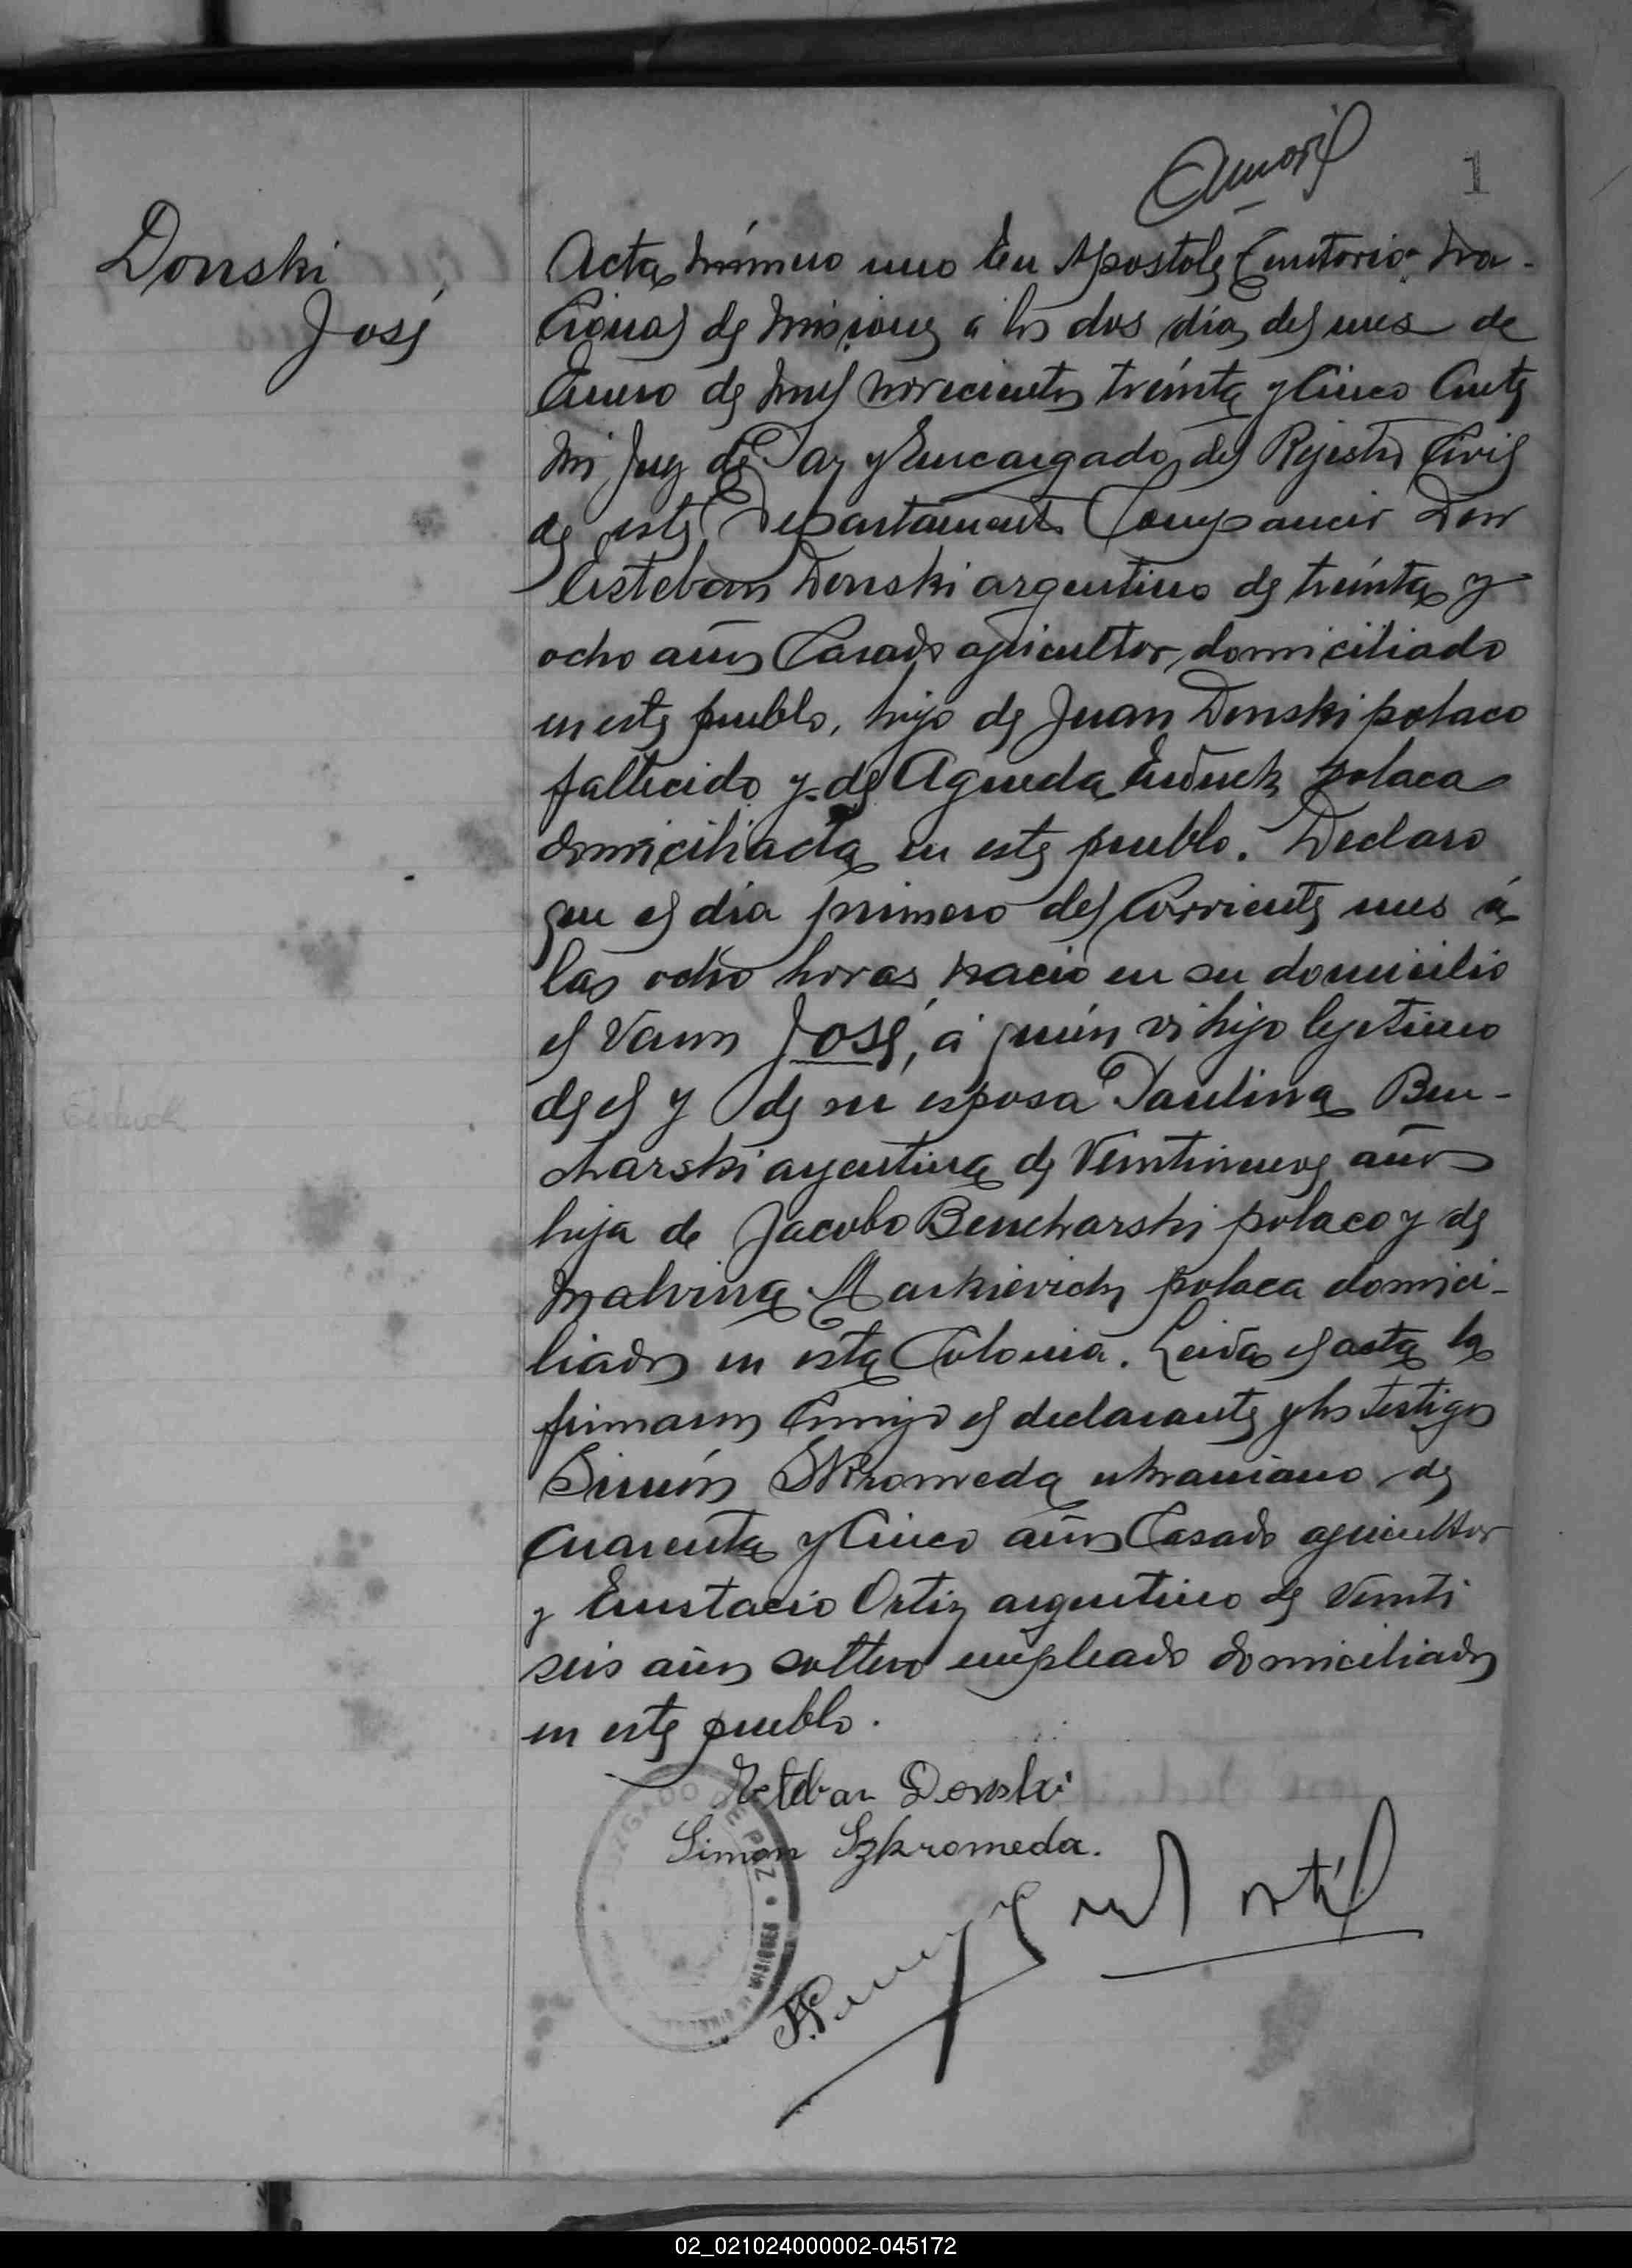 1
Donski
José
Acta número uno En Apostoles Territorio Na-
cional de Misiones a los dos días del mes de
Enero de mil novecientos treinta y cinco Ante
mi Juez de Paz y Encargado del Rejistro Civil
de este Departamento Compareció Don
Esteban Donski argentino de treinta y
ocho años Casado agricultor, domiciliado
en este pueblo, hijo de Juan Donski polaco
fallecido y de Agueda polaca
domiciliada en este pueblo. Declaro
que el día primero del Corriente mes á
las ocho horas nació en su domicilio
el Varon José, á quien vi hijo lejitimo
de el y de su esposa Paulina Ben-
charski argentina de Veintinueve años
hija de Jacobo Bencharski polaco y de
Malvina Markievich polaca domici-
liados en esta Colonia. Leida el acta la
firmaron Conmigo el declarante y los testigos
Simón Skromeda ukraniano de
cuarenta y Cinco años Casado agricultor
y Eustacio Ortiz argentino de Veinti
seis años soltero empleado domiciliados
en este pueblo.
Esteban Donski
Simon Szkromeda.
JUZGADO DE PAZ
MISIONES
02_021024000002-045172